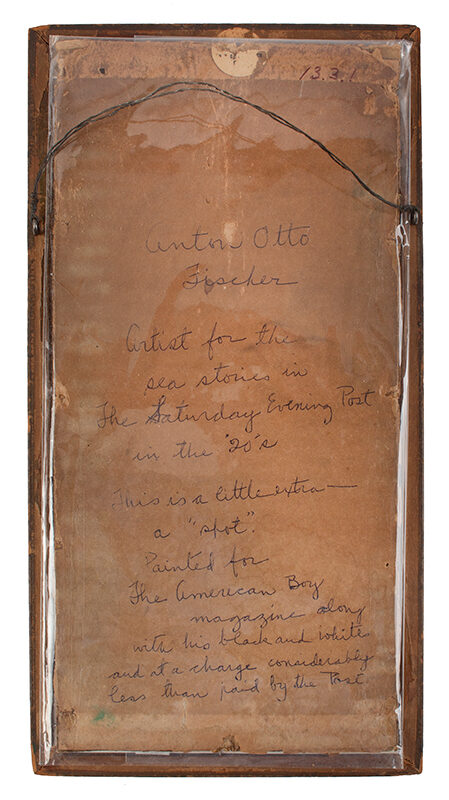 13.3.1
Anton Otto
Fischer
Artist for the
sea stories in
The Saturday Evening Post
in the '20's
This is a little extra—
a "spot".
Painted for
The American Boy
magazine along
with his black and white
and at a charge considerably
less than paid by the Post.